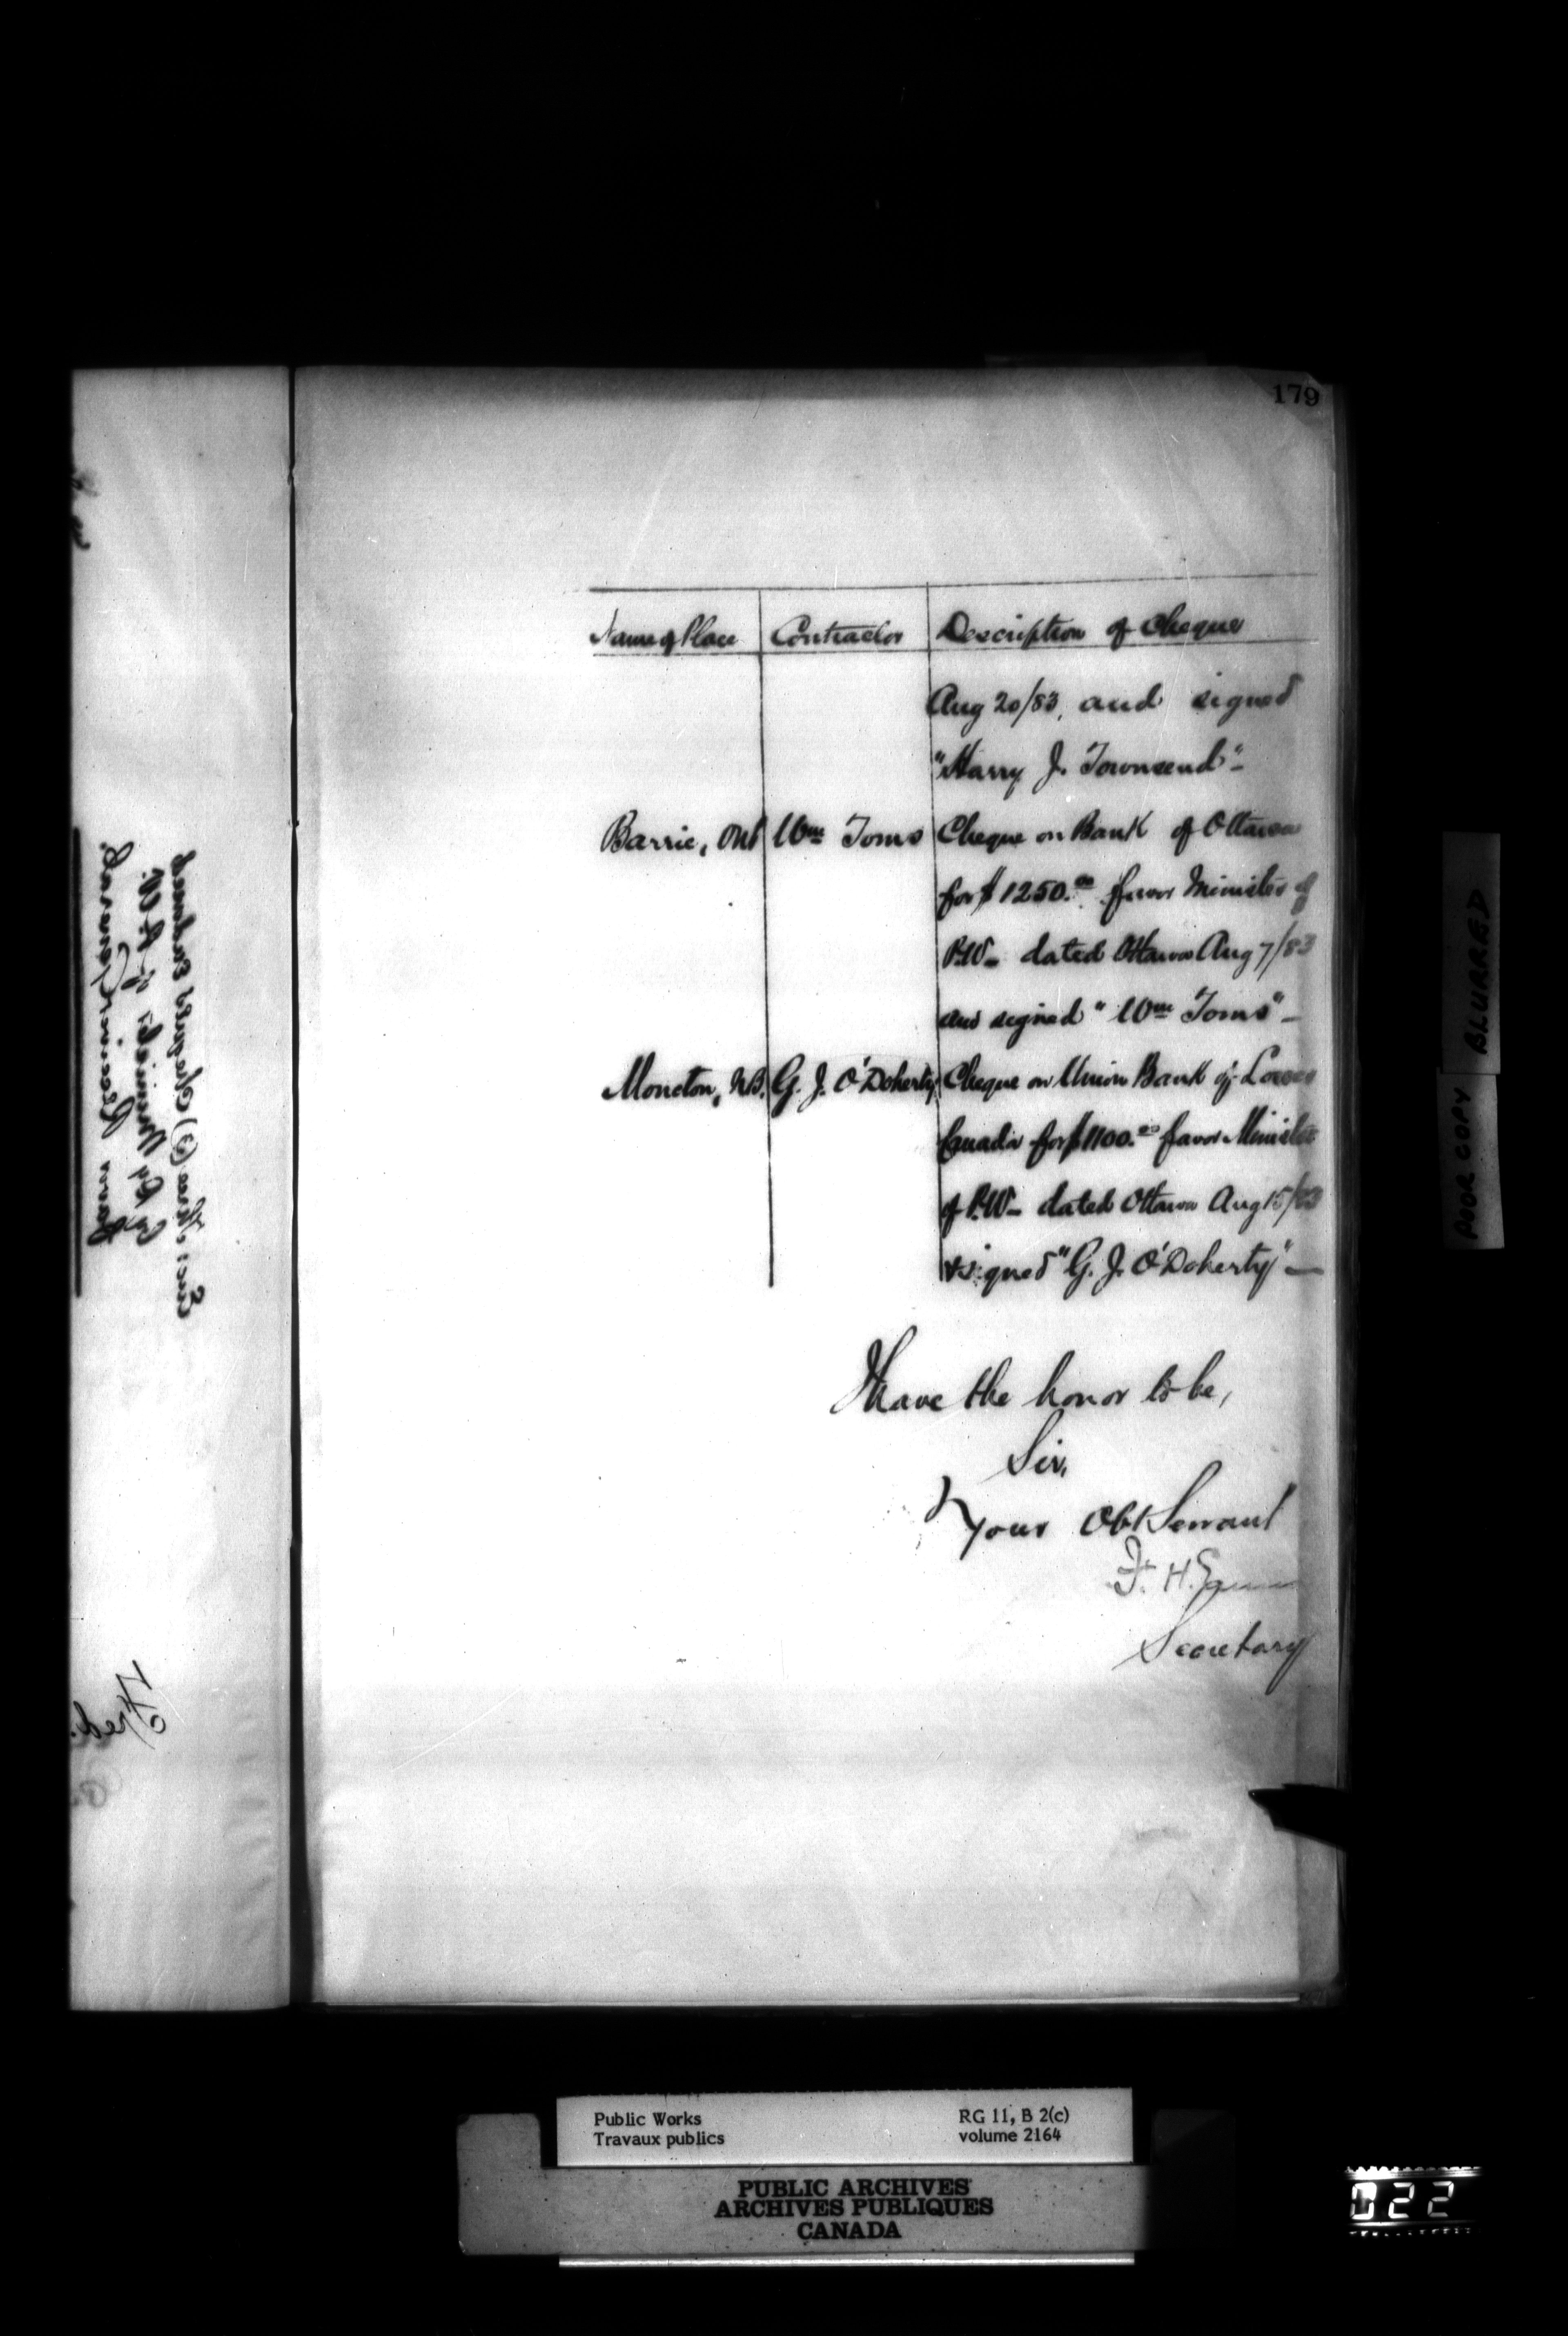 179
Name of Place Contractor Description of Cheque
Aug 20/83, and signed
"Harry J. Townsend"-
Barrie, Ont Wm Toms Cheque on Bank of Ottawa
for $1250.00 favor Minister of
P.W- dated Ottawa Aug 7/83
and signed "Wm Toms"-
Moncton, N.B. G. J. O'Doherty Cheque on Union Bank of Lower
Canada for $1100.00 favor Minister
of P.W- dated Ottawa Aug 15/83
& signed "G. J. O'Doherty"-
I have the honor to be,
Sir,
Your Obt Servant
F. H. E
Secretary
POOR COPY BLURRED
Public Works
Travaux publics
RG 11, B 2(c)
volume 2164
PUBLIC ARCHIVES
ARCHIVES PUBLIQUES
CANADA
022